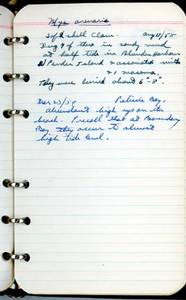 Mya arenaria
Soft shell Clam. Aug 11/50
Dug 9 of these in sandy mud
at half tide in Blunden Harbour
N Pender Island associated with
& 1 macoma.
They were buried about 6"-8".
Dec 21/50 Patricia Bay.
abundant high up on the
beach. Recall that at Boundary
Bay they occur to almost
high tide level.